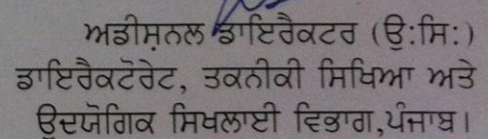 ਅਡੀਸ਼ਨਲ ਡਾਇਰੈਕਟਰ (ਉ:ਸਿ:)
ਡਾਇਰੈਕਟੋਰੇਟ, ਤਕਨੀਕੀ ਸਿਖਿਆ ਅਤੇ
ਉਦਯੋਗਿਕ ਸਿਖਲਾਈ ਵਿਭਾਗ,ਪੰਜਾਬ।